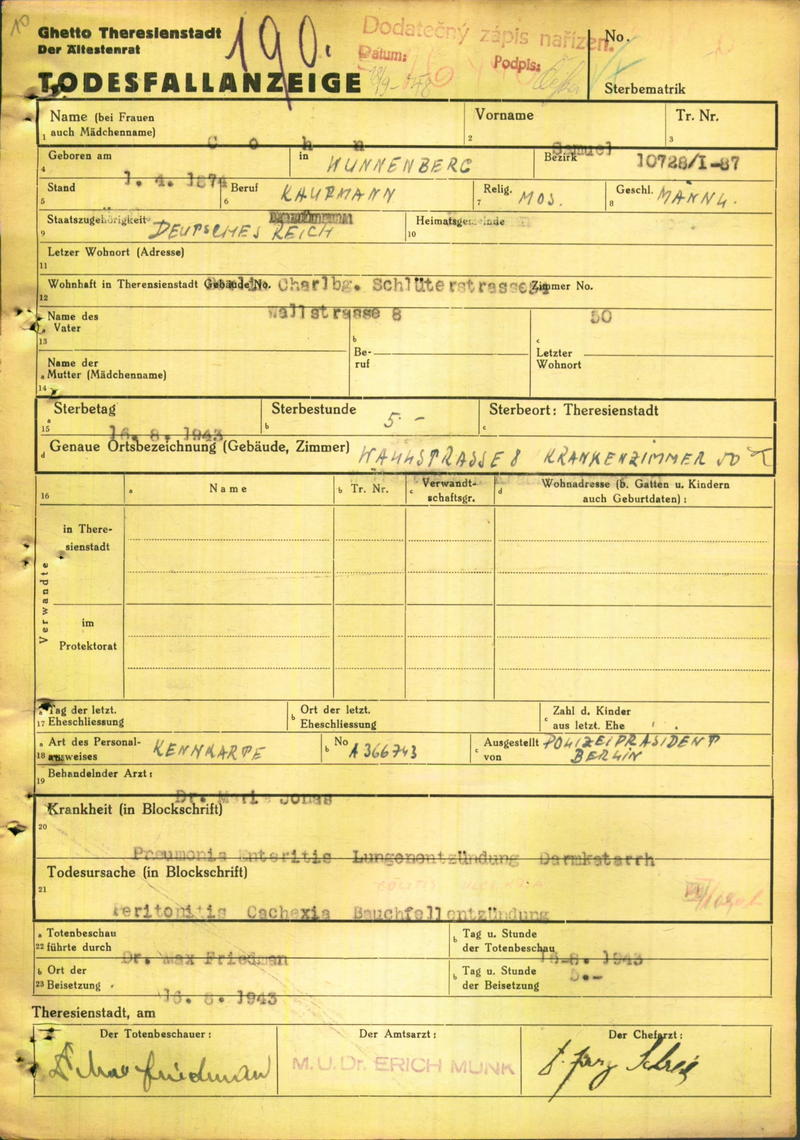 10
Ghetto Theresienstadt
Der Ältestenrat
190.
TODESFALLANZEIGE
Dodatečný zápis nařízen.
Datum:
Podpis:
No.
Sterbematrik
Name (bei Frauen
1 auch Mädchenname)
Vorname
2
Tr. Nr.
3
Cohn
Samuel
10728/I-87
Geboren am
4
1. 4. 1874
in
WÜNNENBERG
Bezirk
Stand
5
Beruf
6
KAUFMANN
Relig.
7
MOS.
Geschl.
8
MÄNNL.
Staatszugehörigkeit
9
DEUTSCHES REICH
Kaufmann
Heimatsgemeinde
10
Letzer Wohnort (Adresse)
11
Charlbg. Schlüterstrasse
Wohnhaft in Theresienstadt Gebäude No.
12
Zimmer No.
Wallstrasse 8
50
Name des
a Vater
13
b
Be-
ruf
c
Letzter
Wohnort
Name der
a Mutter (Mädchenname)
14
Sterbetag
a
15
16. 8. 1943
Sterbestunde
b
5.-
Sterbeort: Theresienstadt
c
d Genaue Ortsbezeichnung (Gebäude, Zimmer)
WALLSTRASSE 8 KRANKENZIMMER 50
16
a Name
b Tr. Nr.
c Verwandt-
schaftsgr.
d Wohnadresse (b. Gatten u. Kindern
auch Geburtdaten):
Verwandte
in There-
sienstadt
im
Protektorat
a Tag der letzt.
17 Eheschliessung
b Ort der letzt.
Eheschliessung
c Zahl d. Kinder
aus letzt. Ehe
a Art des Personal-
18 ausweises
KENNKARTE
b No
A 366743
c Ausgestellt
von
POLIZEIPRÄSIDENT
BERLIN
Behandelnder Arzt:
19
Dr. Marie Jonas
Krankheit (in Blockschrift)
20
Pneumonia Enteritis Lungenentzündung Darmkatarrh
Todesursache (in Blockschrift)
21
Peritonitis Cachexia Bauchfellentzündung
a Totenbeschau
22 führte durch
Dr. Max Friedman
b Tag u. Stunde
der Totenbeschau
16.8. 1943
b Ort der
23 Beisetzung
b Tag u. Stunde
der Beisetzung
5.-
Theresienstadt, am
16. 8. 1943
Der Totenbeschauer:
Der Amtsarzt:
Der Chefarzt:
M.U.Dr. ERICH MUNK